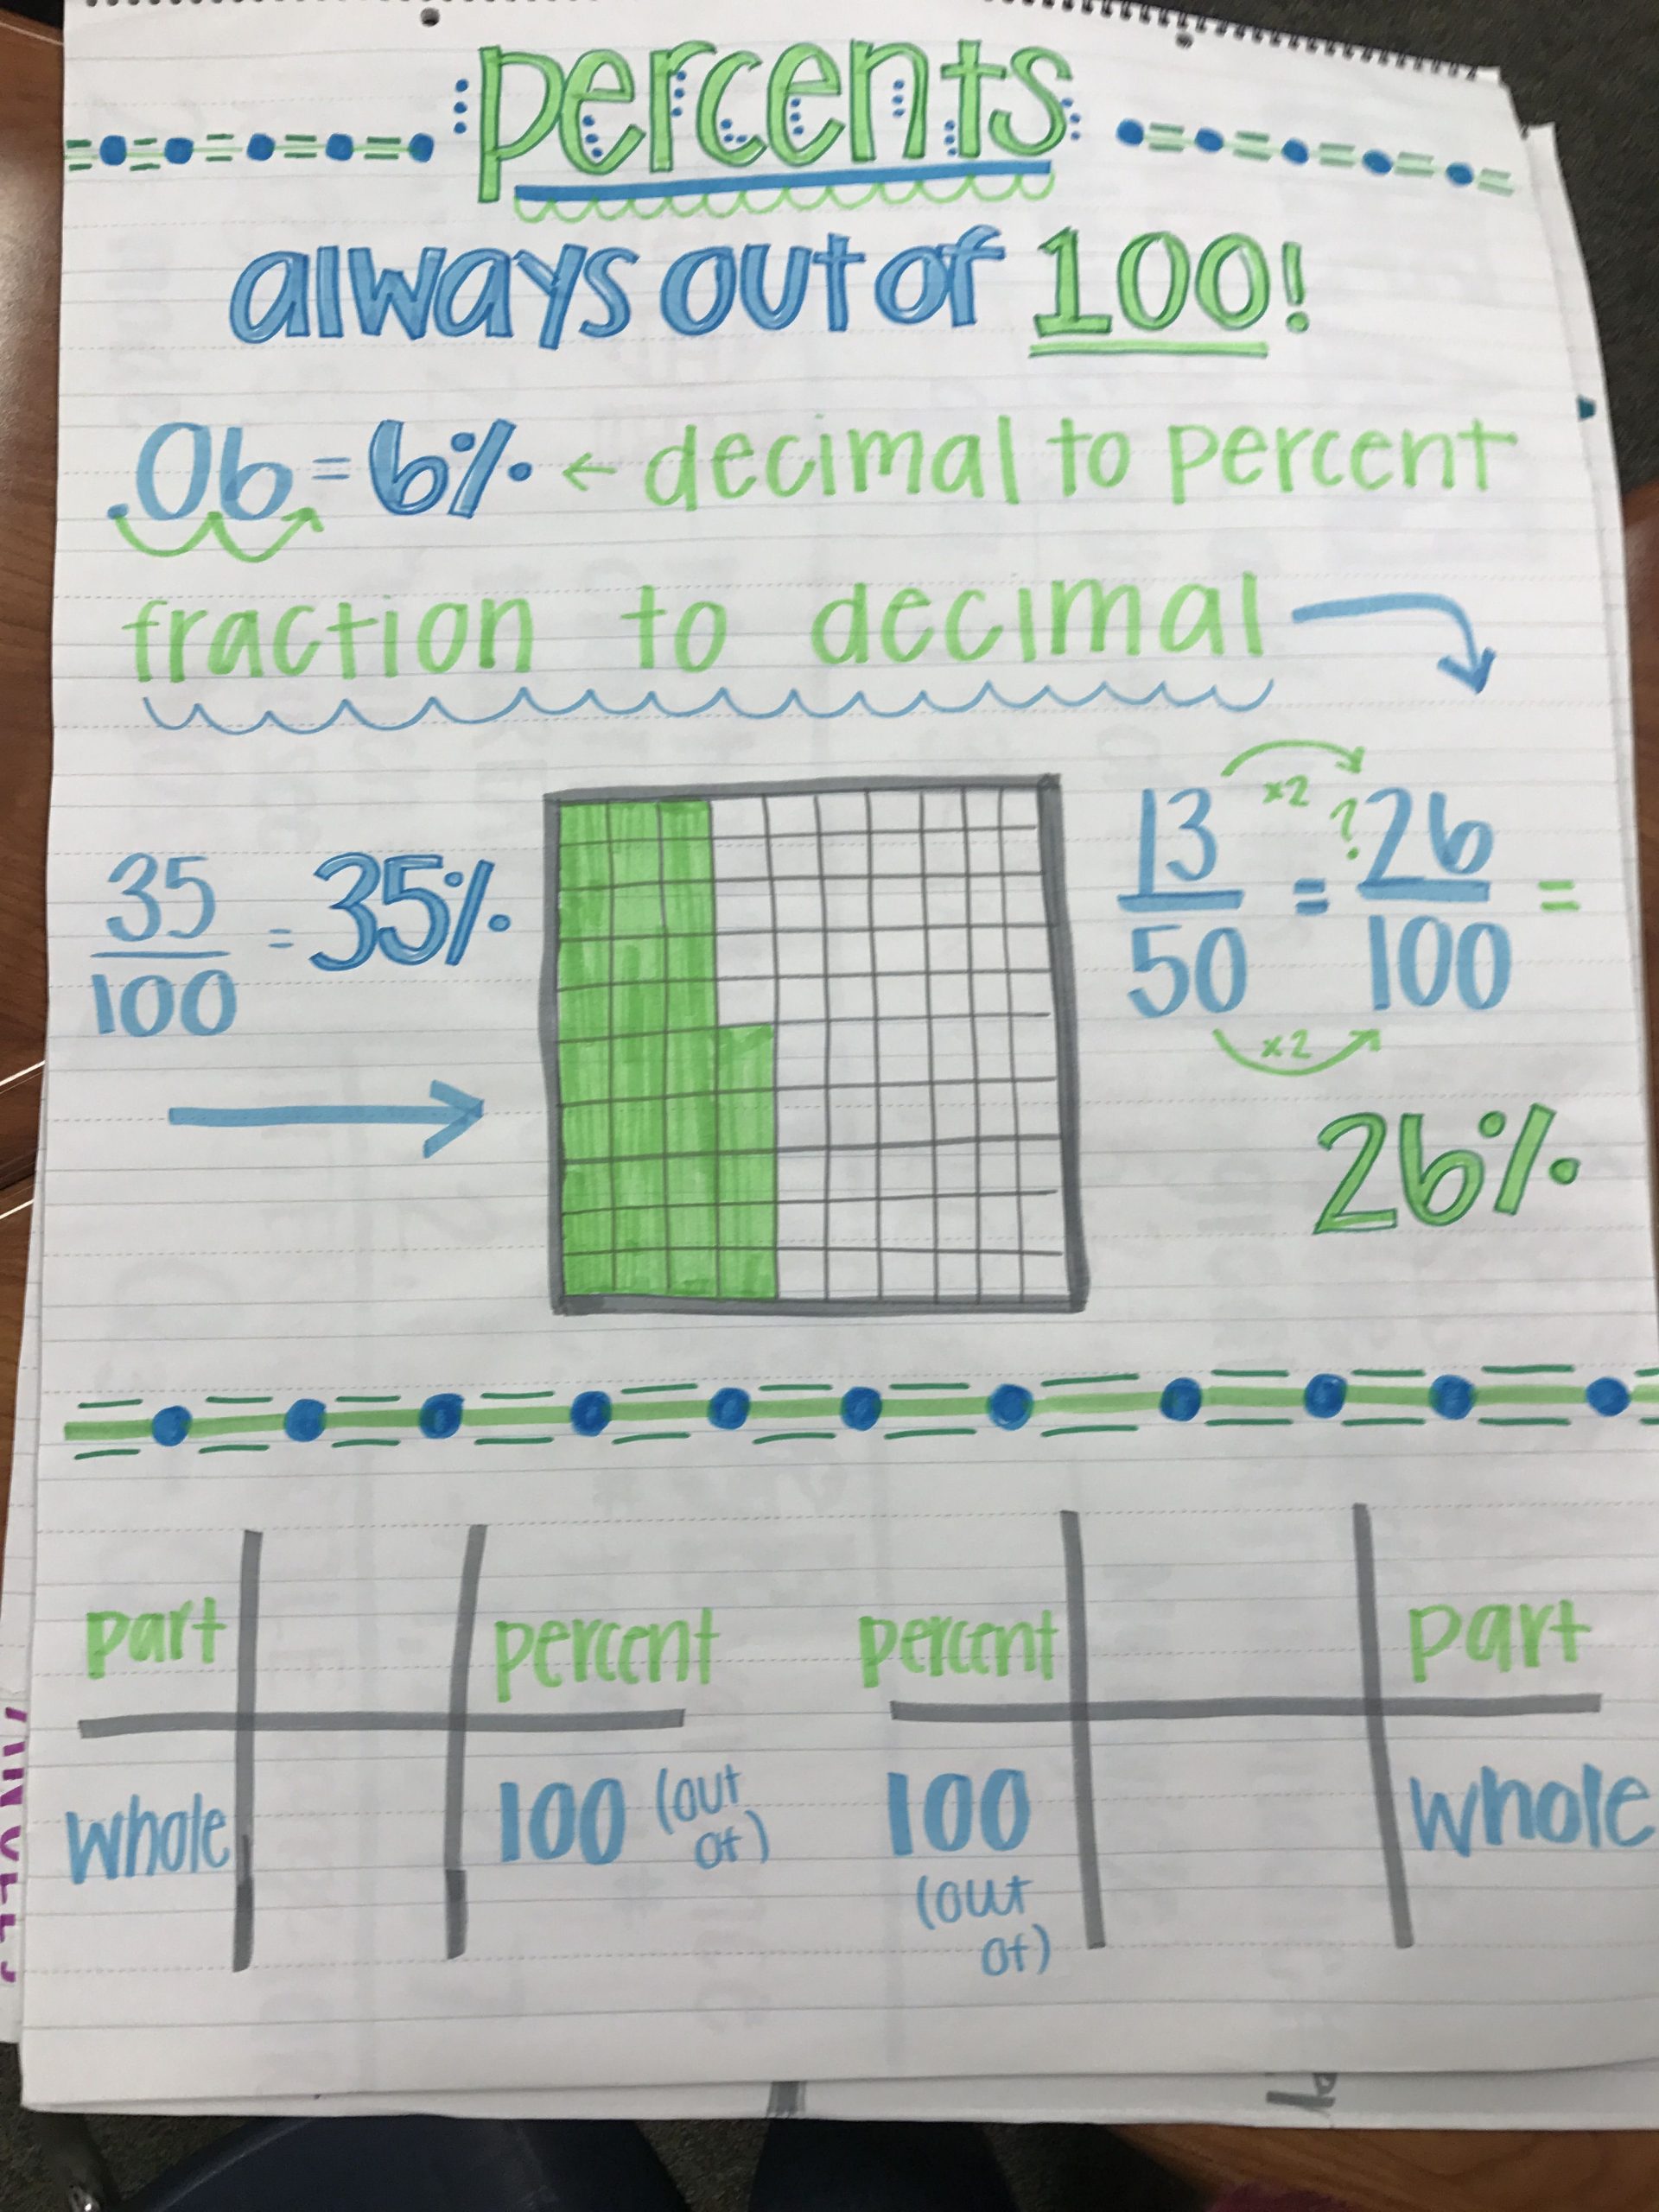 percents
always out of 100!
.06 = 6% ← decimal to percent
fraction to decimal
35/100 = 35%
13/50 = 26/100 =
x2
?
x2
26%
part percent percent part
whole 100 (out of) 100 (out of) whole